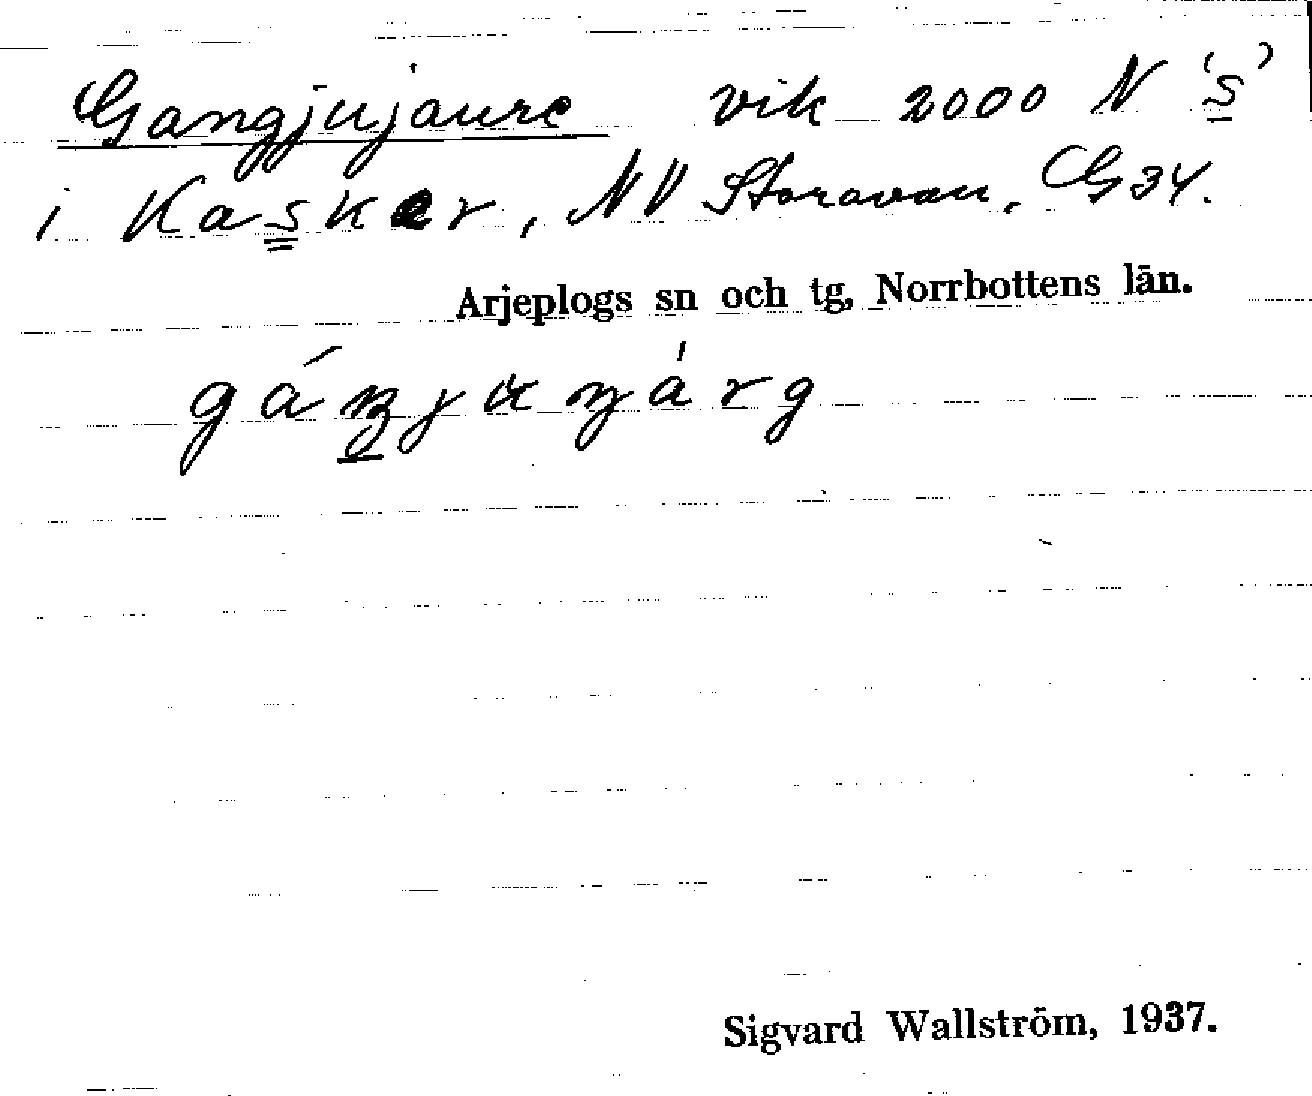 Gangjujaure vik 2000 N 's'
i Kasker, NV Storavan, G34.
Arjeplogs sn och tg, Norrbottens län.
gáŋjuŋárg
Sigvard Wallström, 1937.